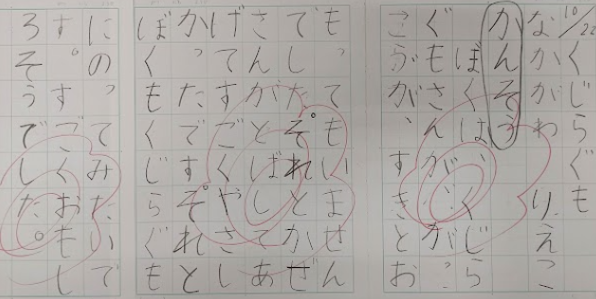 10/22くじらぐも
なかがわ りえこ
かんそう
ぼくは、くじら
ぐもさんが、
が、すきとお
もってもいません
でした。それとかぜ
さんがとばしてあ
げてすごくやさし
かったですそれと
ぼくもくじらぐも
にのってみたいで
す。すごくおもし
ろそうでした。